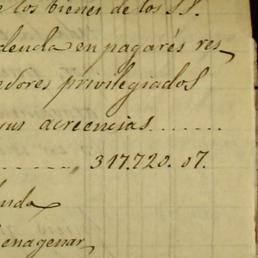 e los bienes de los SS.
deuda en pagarés res_
edores privilegiados
sus acreencias.......
......., 317.720.07.
enagenar